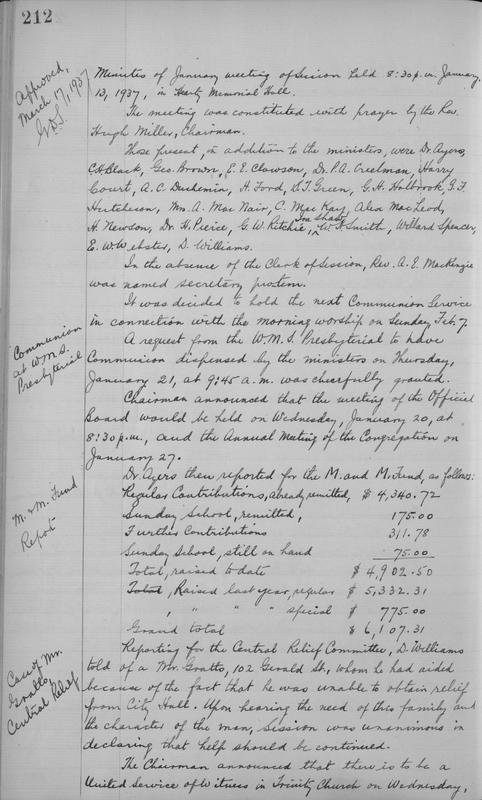 212
Approved,
March 17, 1937
Minutes of January meeting of Session held 8:30 p.m. January
13, 1937, in Hartz Memorial Hall.
The meeting was constituted with prayer by the Rev.
Hugh Miller, Chairman.
Those present, in addition to the ministers, were Dr. Ayers,
C.H. Black, Geo. Brown, E.E. Clawson, Dr. P.A. Creelman, Harry
Court, A.C. Duchemin, H. Ford, D.T. Green, G.H. Holbrook, G.F.
Hutcheson, Wm. A. Mac Nair, C. Mac Kay, Alex MacLeod,
H. Newson, Dr. H. Pierce, G.W. Ritchie, Ira Shaw, W.D. Smith, Willard Spencer,
E.W. Webster, D. Williams.
In the absence of the Clerk of Session, Rev. A.E. MacKenzie
was named secretary protem.
It was decided to hold the next Communion Service
in connection with the morning worship on Sunday Feb. 7.
Communion
at W.M.S.
Presbyterial
A request from the W.M.S. Presbyterial to have
Communion dispensed by the ministers on Thursday,
January 21, at 9:45 a.m. was cheerfully granted.
Chairman announced that the meeting of the Official
Board would be held on Wednesday, January 20, at
8:30 p.m., and the Annual Meeting of the Congregation on
January 27.
M. & M. Fund
Report
Dr. Ayers then reported for the M. and M. Fund, as follows:
Regular Contributions, already remitted, $ 4,340.72
Sunday School, remitted, 175.00
Further Contributions 311.78
Sunday School, still on hand 75.00
Total, raised to date $ 4,902.50
Total, Raised last year, regular $ 5,332.31
" " " " special $ 775.00
Grand total $ 6,107.31
Case of Mr.
Gratto,
Central Relief
Reporting for the Central Relief Committee, D. Williams
told of a Mr. Gratto, 102 Gerald St., whom he had aided
because of the fact that he was unable to obtain relief
from City Hall. Upon hearing the need of this family and
the character of the man, Session was unanimous in
declaring that help should be continued.
The Chairman announced that there is to be a
United Service of Witness in Trinity Church on Wednesday,